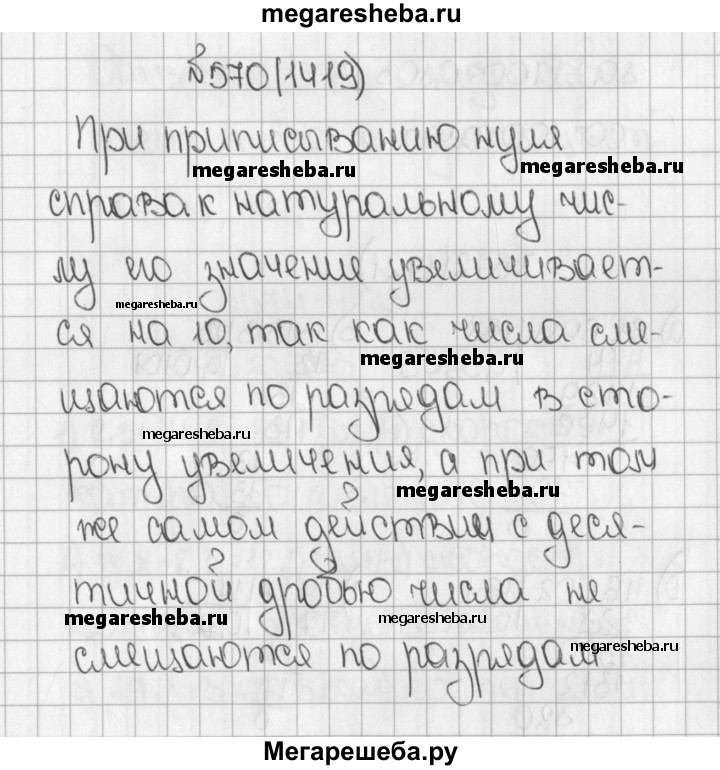 megaresheba.ru
№570(1419)
При приписыванию нуля
megaresheba.ru
megaresheba.ru
справа к натуральному чис-
лу его значение увеличивает-
megaresheba.ru
ся на 10, так как числа сме-
megaresheba.ru
щаются по разрядам в сто-
megaresheba.ru
рону увеличения, а при том
megaresheba.ru
же самом действии с деся-
тичной дробью числа не
megaresheba.ru
megaresheba.ru
megaresheba.ru
смещаются по разрядам
Мегарешеба.ру